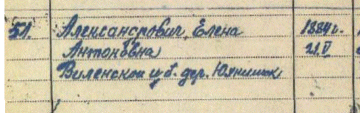 51. Александрович, Елена 1884г.
Антоновна 21.V
Виленской губ. дер.